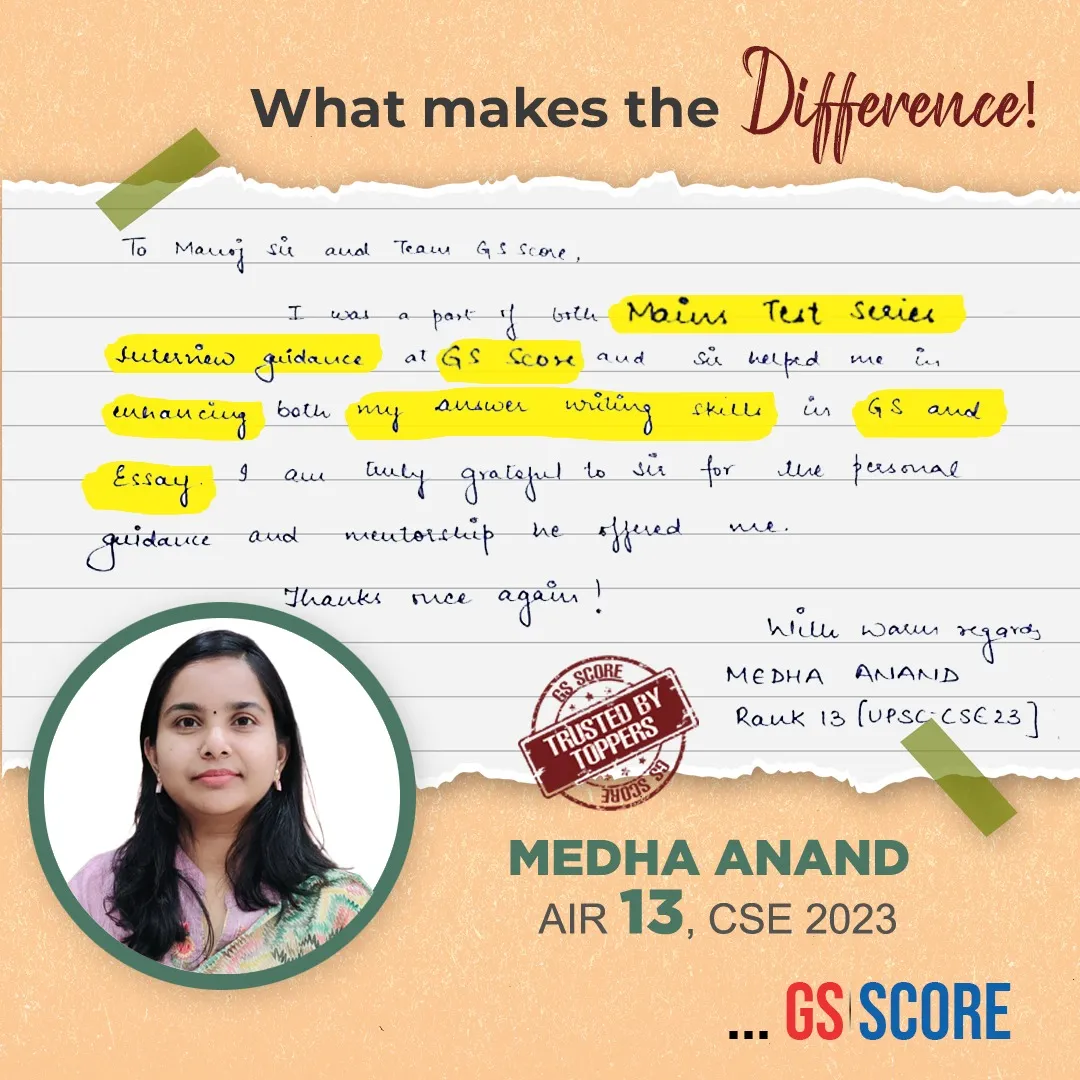 What makes the Difference!
To Manoj sir and Team GS Score,
I was a part of both Mains Test Series
Interview guidance at GS Score and sir helped me in
enhancing both my answer writing skills in GS and
Essay. I am truly grateful to sir for the personal
guidance and mentorship he offered me.
Thanks once again!
With warm regards
MEDHA ANAND
Rank 13 [UPSC-CSE23]
GS SCORE
TRUSTED BY
TOPPERS
GS SCORE
MEDHA ANAND
AIR 13, CSE 2023
... GS SCORE